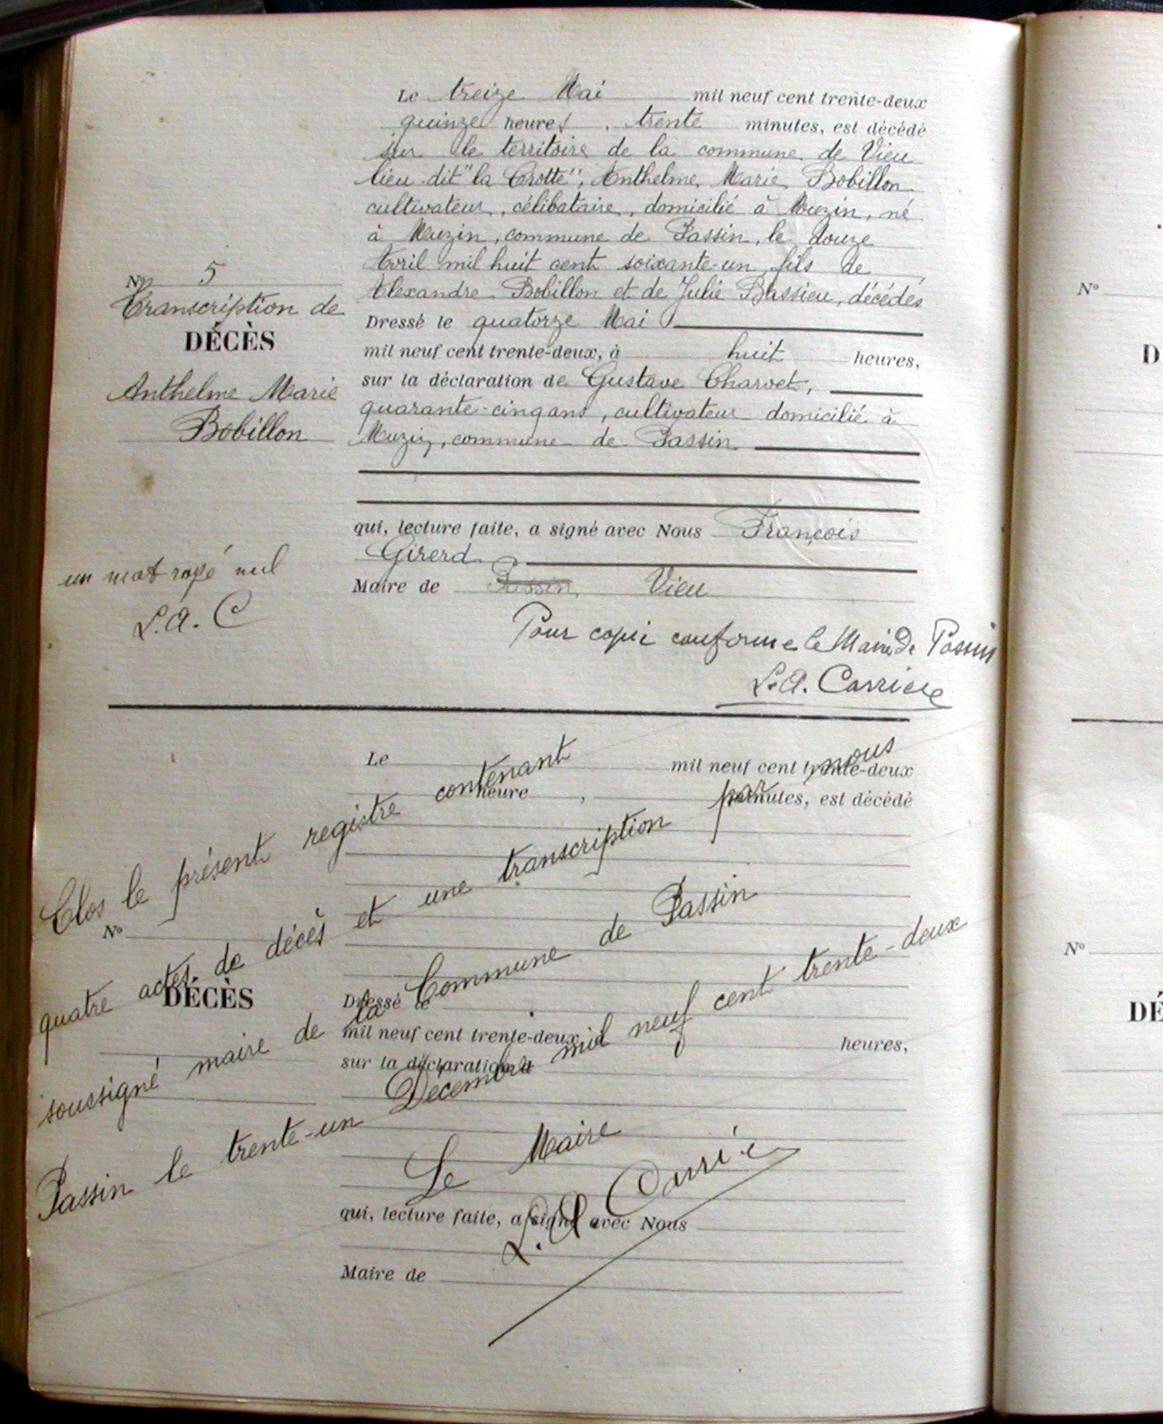 Le treize Mai mil neuf cent trente-deux
quinze heures, trente minutes, est décédé
sur le territoire de la commune de Vieu
lieu dit "la Crotte", Anthelme Marie Bobillon
cultivateur, célibataire, domicilié à Muzin, né
à Muzin, commune de Passin, le douze
Avril mil huit cent soixante-un, fils de
Alexandre Bobillon et de Julie Bassieu, décédés
Dressé le quatorze Mai
mil neuf cent trente-deux, à huit heures,
sur la déclaration de Gustave Charvet,
quarante-cinq ans, cultivateur domicilié à
Muzin, commune de Passin
qui, lecture faite, a signé avec Nous François
Girerd
Maire de Passin Vieu
Pour copie conforme le Maire de Passin
L.A. Carrier
No 5
Transcription de
DÉCÈS
Anthelme Marie
Bobillon
un mot rayé nul
L.A. C
Le mil neuf cent trente-deux
heure , minutes, est décédé
No
DÉCÈS
Dressé le
mil neuf cent trente-deux, à heures,
sur la déclaration de
qui, lecture faite, a signé avec Nous
Maire de
Clos le présent registre contenant
quatre actes de décès et une transcription par nous
soussigné maire de la Commune de Passin
Passin le trente-un Décembre mil neuf cent trente-deux
Le Maire
L.A. Carrie
No
D
No
DÉ